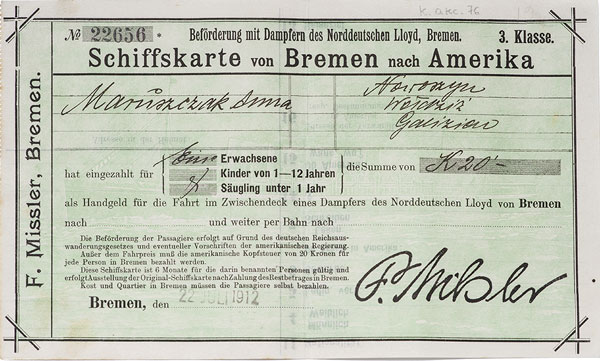 K. Dec. 76
№ 22656 *
Beförderung mit Dampfern des Norddeutschen Lloyd, Bremen.
3. Klasse.
Schiffskarte von Bremen nach Amerika
F. Missler, Bremen.
Maruszczak Anna
Galizien
hat eingezahlt für
Erwachsene
Kinder von 1—12 Jahren
Säugling unter 1 Jahr
die Summe von K 20-
als Handgeld für die Fahrt im Zwischendeck eines Dampfers des Norddeutschen Lloyd von Bremen
nach und weiter per Bahn nach
Die Beförderung der Passagiere erfolgt auf Grund des deutschen Reichsaus-
wanderungsgesetzes und eventueller Vorschriften der amerikanischen Regierung.
Außer dem Fahrpreis muß die amerikanische Kopfsteuer von 20 Kronen für
jede Person in Bremen bezahlt werden.
Diese Schiffskarte ist 6 Monate für die darin benannten Personen gültig und
erfolgt Ausstellung der Original-Schiffskarte nach Zahlung des Restbetrages in Bremen.
Kost und Quartier in Bremen müssen die Passagiere selbst bezahlen.
F. Missler
Bremen, den 22 JULI 1912